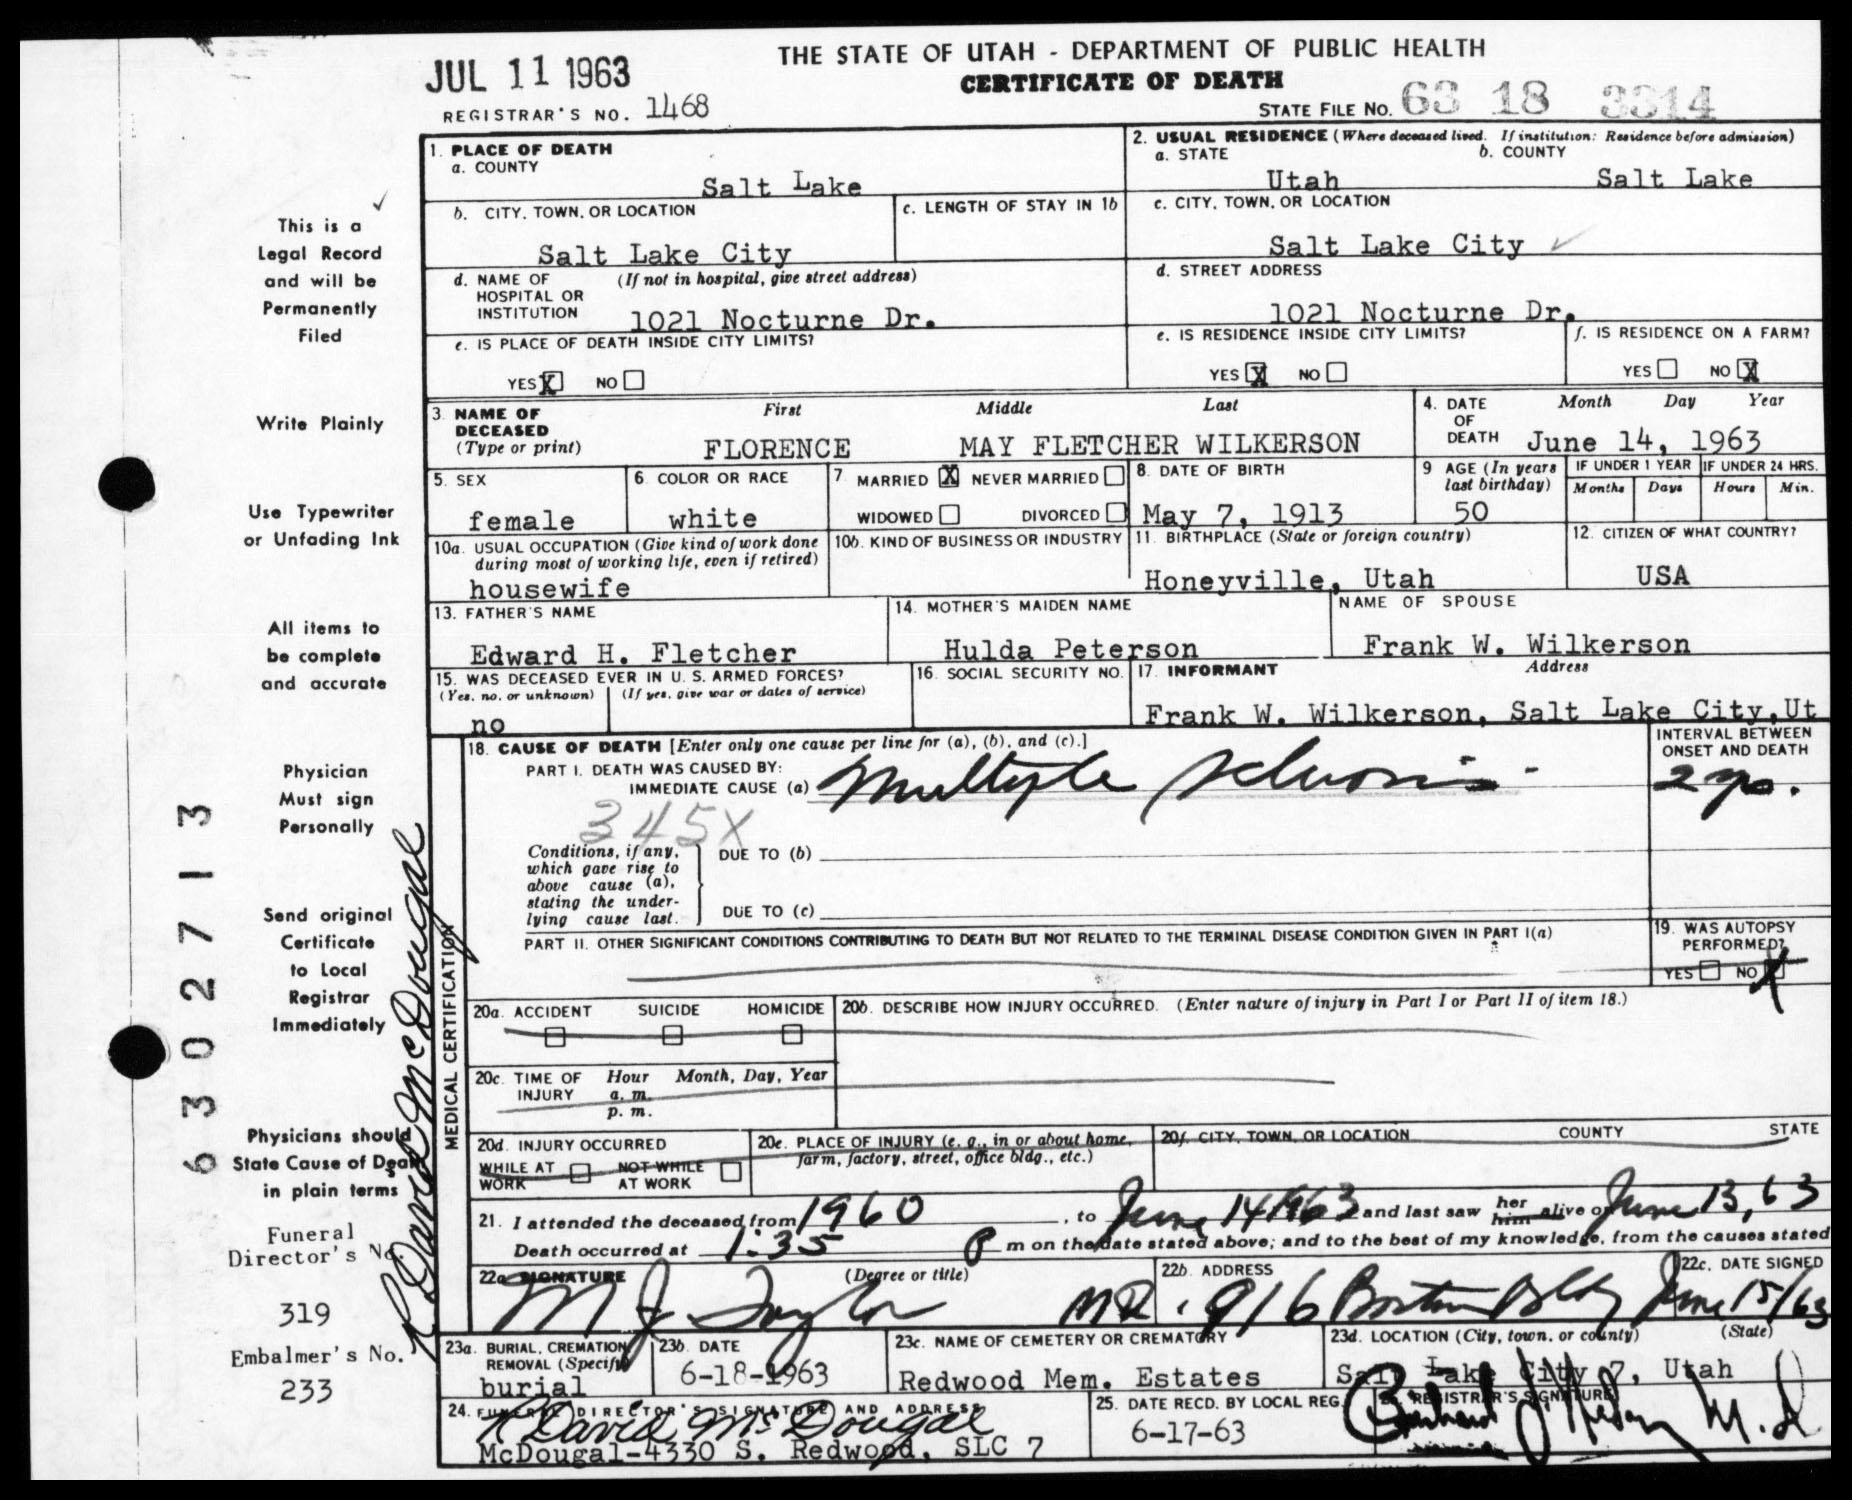 JUL 11 1963
THE STATE OF UTAH - DEPARTMENT OF PUBLIC HEALTH
CERTIFICATE OF DEATH
REGISTRAR'S NO. 1468
STATE FILE NO. 63 18 3314
1. PLACE OF DEATH
a. COUNTY
Salt Lake
2. USUAL RESIDENCE (Where deceased lived. If institution: Residence before admission)
a. STATE b. COUNTY
Utah Salt Lake
b. CITY, TOWN, OR LOCATION
Salt Lake City
c. LENGTH OF STAY IN 1b
c. CITY, TOWN, OR LOCATION
Salt Lake City
d. NAME OF HOSPITAL OR INSTITUTION (If not in hospital, give street address)
1021 Nocturne Dr.
d. STREET ADDRESS
1021 Nocturne Dr.
e. IS PLACE OF DEATH INSIDE CITY LIMITS?
YES X NO
e. IS RESIDENCE INSIDE CITY LIMITS?
YES X NO
f. IS RESIDENCE ON A FARM?
YES NO X
3. NAME OF DECEASED (Type or print)
First Middle Last
FLORENCE MAY FLETCHER WILKERSON
4. DATE OF DEATH
Month Day Year
June 14, 1963
5. SEX
female
6. COLOR OR RACE
white
7. MARRIED X NEVER MARRIED
WIDOWED DIVORCED
8. DATE OF BIRTH
May 7, 1913
9 AGE (In years last birthday)
50
IF UNDER 1 YEAR
Months Days
IF UNDER 24 HRS.
Hours Min.
10a. USUAL OCCUPATION (Give kind of work done during most of working life, even if retired)
housewife
10b. KIND OF BUSINESS OR INDUSTRY
11. BIRTHPLACE (State or foreign country)
Honeyville, Utah
12. CITIZEN OF WHAT COUNTRY?
USA
13. FATHER'S NAME
Edward H. Fletcher
14. MOTHER'S MAIDEN NAME
Hulda Peterson
NAME OF SPOUSE
Frank W. Wilkerson
15. WAS DECEASED EVER IN U.S. ARMED FORCES?
(Yes, no, or unknown) (If yes, give war or dates of service)
no
16. SOCIAL SECURITY NO.
17. INFORMANT Address
Frank W. Wilkerson, Salt Lake City, Ut
MEDICAL CERTIFICATION
18. CAUSE OF DEATH [Enter only one cause per line for (a), (b), and (c).]
PART I. DEATH WAS CAUSED BY:
IMMEDIATE CAUSE (a) Multiple Sclerosis
345X
INTERVAL BETWEEN ONSET AND DEATH
Conditions, if any, which gave rise to above cause (a), stating the underlying cause last.
DUE TO (b)
DUE TO (c)
PART II. OTHER SIGNIFICANT CONDITIONS CONTRIBUTING TO DEATH BUT NOT RELATED TO THE TERMINAL DISEASE CONDITION GIVEN IN PART I(a)
19. WAS AUTOPSY PERFORMED?
YES NO X
20a. ACCIDENT SUICIDE HOMICIDE
20b. DESCRIBE HOW INJURY OCCURRED. (Enter nature of injury in Part I or Part II of item 18.)
20c. TIME OF INJURY Hour Month, Day, Year
a. m.
p. m.
20d. INJURY OCCURRED
WHILE AT WORK NOT WHILE AT WORK
20e. PLACE OF INJURY (e. g., in or about home, farm, factory, street, office bldg., etc.)
20f. CITY, TOWN, OR LOCATION COUNTY STATE
21. I attended the deceased from 1960, to June 14 1963 and last saw her him alive on June 13, 63
Death occurred at 1:35 P m on the date stated above; and to the best of my knowledge, from the causes stated
22a. SIGNATURE (Degree or title)
M J Taylor MD.
22b. ADDRESS
916 Boston Bldg
22c. DATE SIGNED
June 15/63
23a. BURIAL, CREMATION REMOVAL (Specify)
burial
23b. DATE
6-18-1963
23c. NAME OF CEMETERY OR CREMATORY
Redwood Mem. Estates
23d. LOCATION (City, town, or county) (State)
Salt Lake City 7, Utah
24. FUNERAL DIRECTOR'S SIGNATURE AND ADDRESS
R David McDougal
McDougal-4330 S. Redwood, SLC 7
25. DATE RECD. BY LOCAL REG.
6-17-63
REGISTRAR'S SIGNATURE
M.D.
This is a
Legal Record
and will be
Permanently
Filed
Write Plainly
Use Typewriter
or Unfading Ink
All items to
be complete
and accurate
Physician
Must sign
Personally
Send original
Certificate
to Local
Registrar
Immediately
Physicians should
State Cause of Death
in plain terms
Funeral
Director's No.
319
Embalmer's No.
233
R David McDougal
6302713